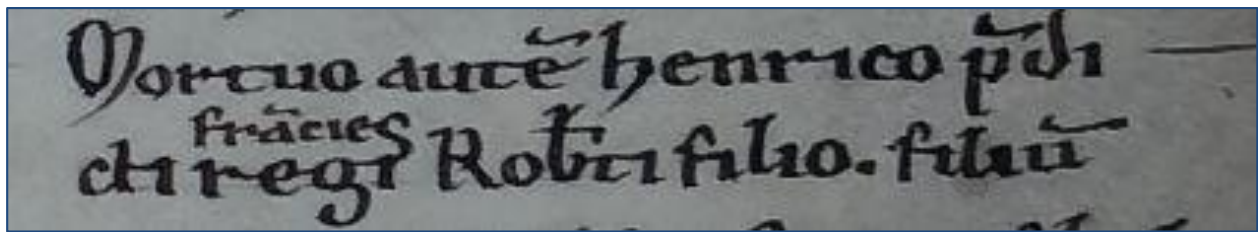 Mortuo autē henrico p̄di
francieſ
cti regiſ Rotb̄ti filio. filiū